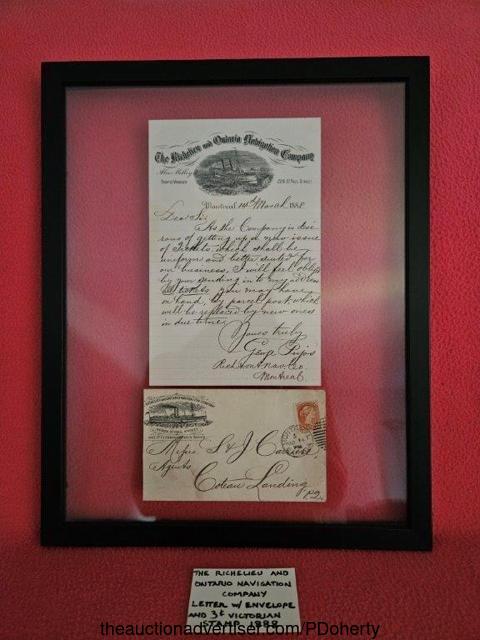 The Richelieu and Ontario Navigation Company
Alex. Milloy
Traffic Manager
228 St Paul Street
Montreal 14th March 1888
Dear Sir
As the Company is desi-
rous of getting up a new issue
of Tickets, which shall be
uniform and better suited for
our business, I will feel obliged
by your sending in to my address
all tickets you may have
on hand, by parcel post, which
will be replaced by new ones
in due time.
Yours truly
George
Rich & Ont. Nav. Co
Montreal
Messrs L & J Carriere
Agents
Coteau Landing
P.Q.
THE RICHELIEU AND
ONTARIO NAVIGATION
COMPANY
LETTER W/ ENVELOPE
AND 3¢ VICTORIAN
STAMP 1888
theauctionadvertiser.com/PDoherty